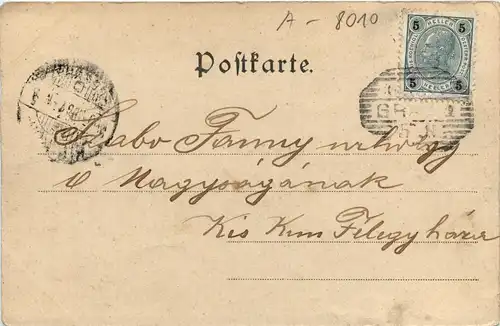 A - 8010
5 HELLER 5
5 5
Postkarte.
GR
Szabo Fanny urhölgy
ő Nagyságának
Kis Kun Félegyháza